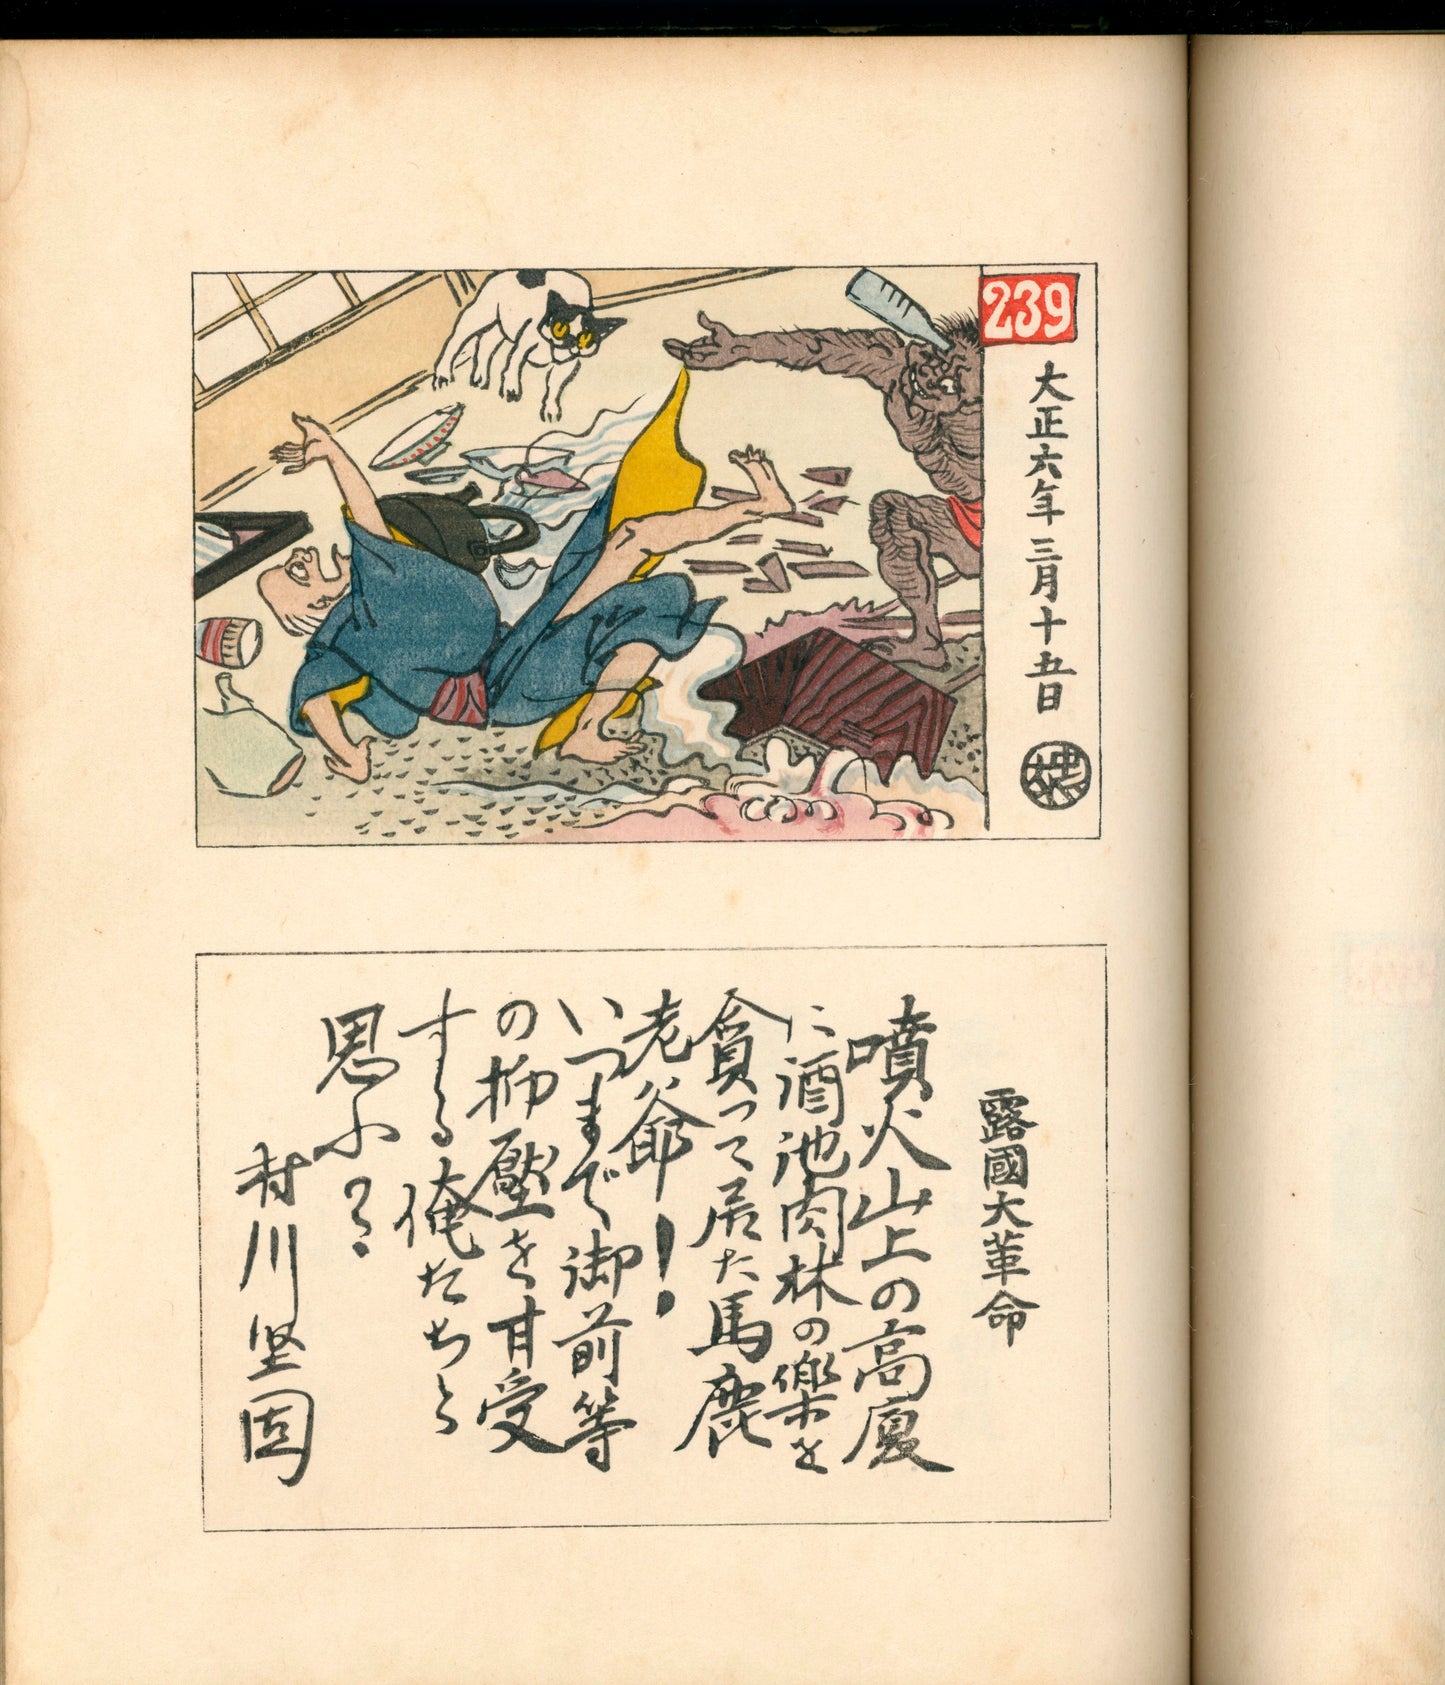 239
大正六年三月十五日
露國大革命
噴火山上の高廈
に酒池肉林の樂を
貪って居た馬鹿
老爺！
いつまで御前等
の抑壓を甘受
する俺たちと
思ふ？
村川堅固